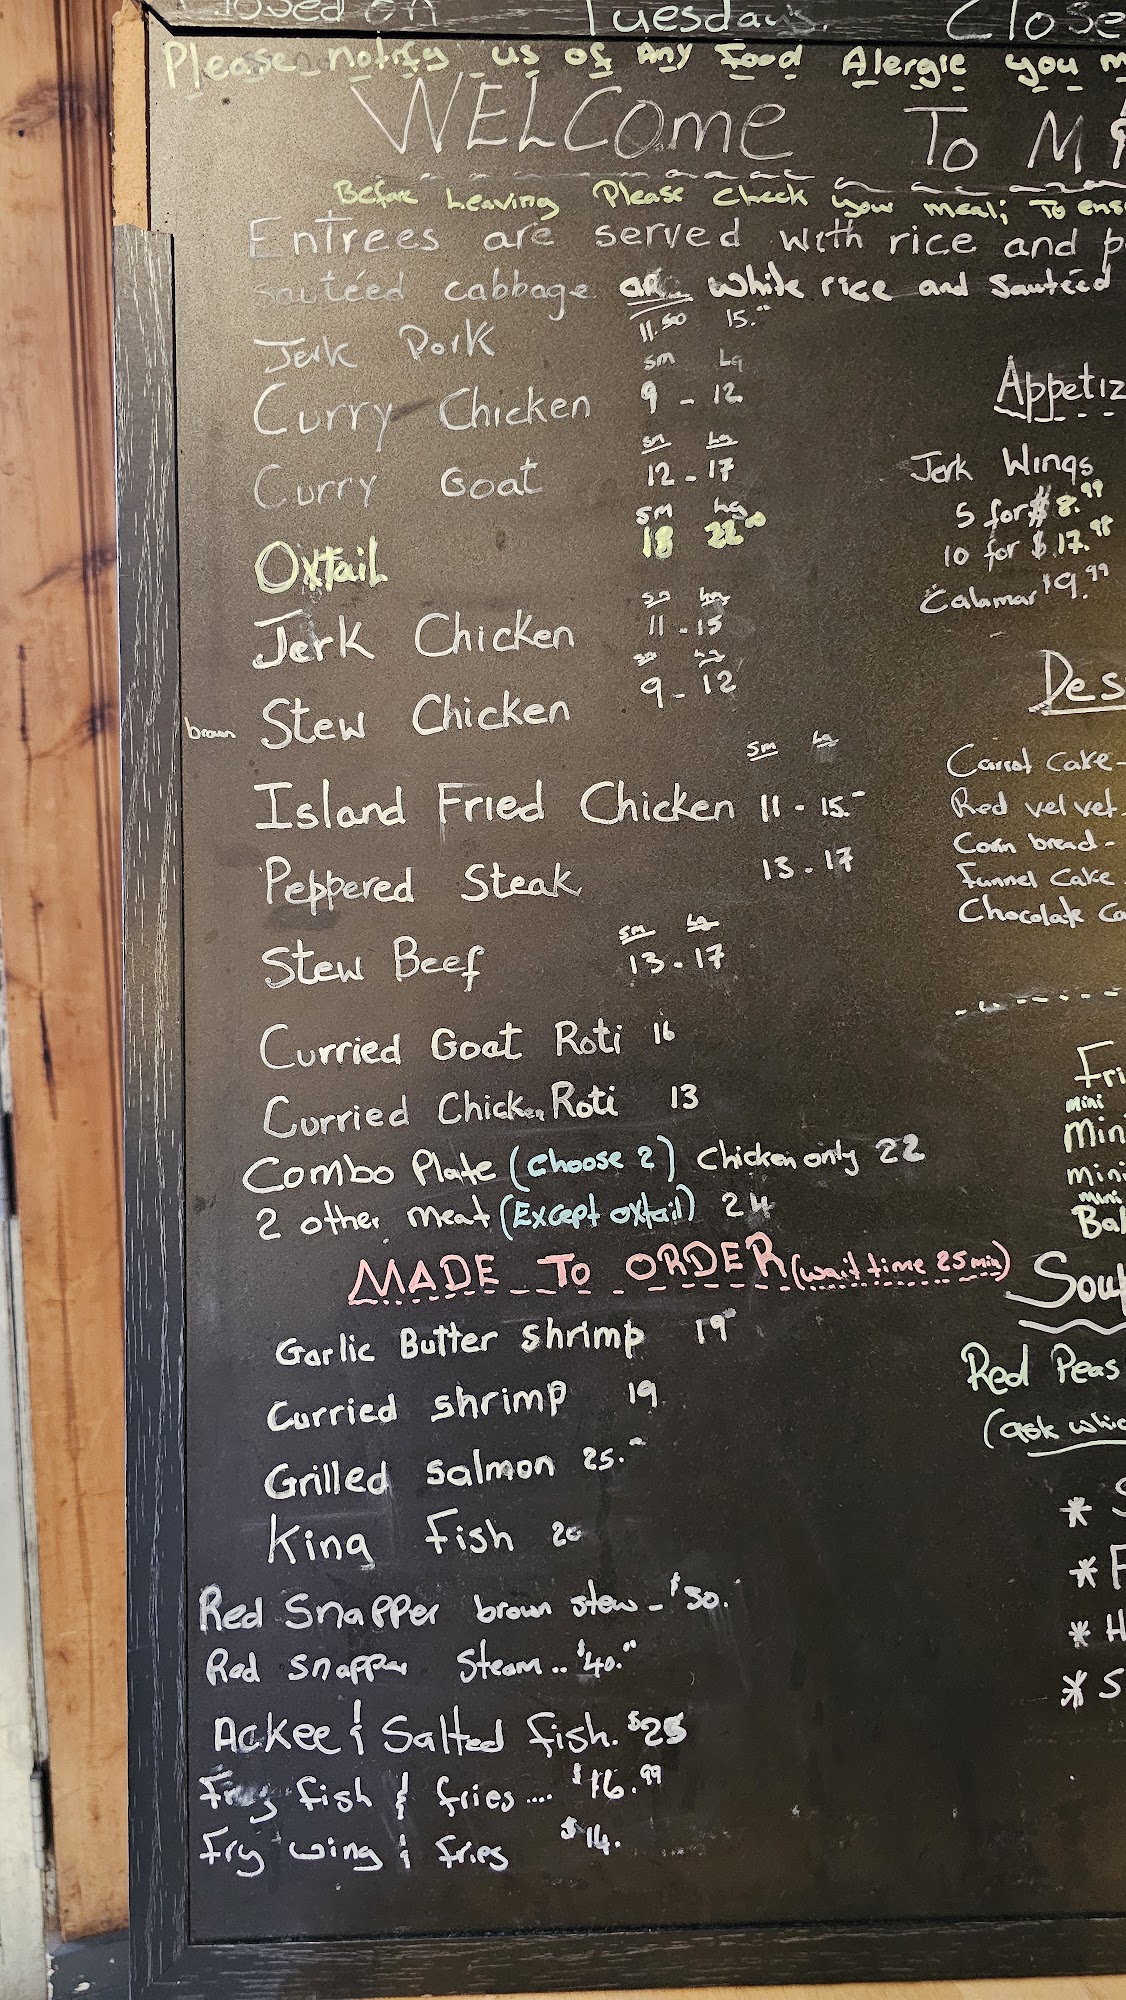 Closed on Tuesdays. Close
Please notify us of Any Food Alergie you m
WELCome To M
Before Leaving Please Check your meal; To ens
Entrees are served with rice and p
sautéed cabbage or white rice and Sautéed
Jerk Pork 11.50 15.00
sm Lg
Curry Chicken 9 - 12
sm Lg
Curry Goat 12 - 17
sm Lg
Oxtail 18 22.00
sm Lg
Jerk Chicken 11 - 15
sm Lg
brown Stew Chicken 9 - 12
sm Lg
Island Fried Chicken 11 - 15.-
Peppered Steak 13 - 17
sm Lg
Stew Beef 13 - 17
Curried Goat Roti 16
Curried Chicken Roti 13
Combo Plate (Choose 2) Chicken only 22
2 other meat (Except oxtail) 24
MADE TO ORDER (wait time 25 min)
Garlic Butter shrimp 19
Curried shrimp 19
Grilled salmon 25.
King Fish 20
Red Snapper brown stew - $30.
Red snapper Steam .. $40.00
Ackee & Salted fish. $25
Fry fish & fries .... $16.99
Fry wing & fries $14.
Appetiz
Jerk Wings
5 for $8.99
10 for $17.98
Calamar $9.99
Des
Carrot Cake -
Red velvet -
Corn bread -
Funnel Cake
Chocolate Ca
Fri
mini
Min
mini
mini
Bak
Soup
Red Peas
(ask whic
* S
* F
* H
* S